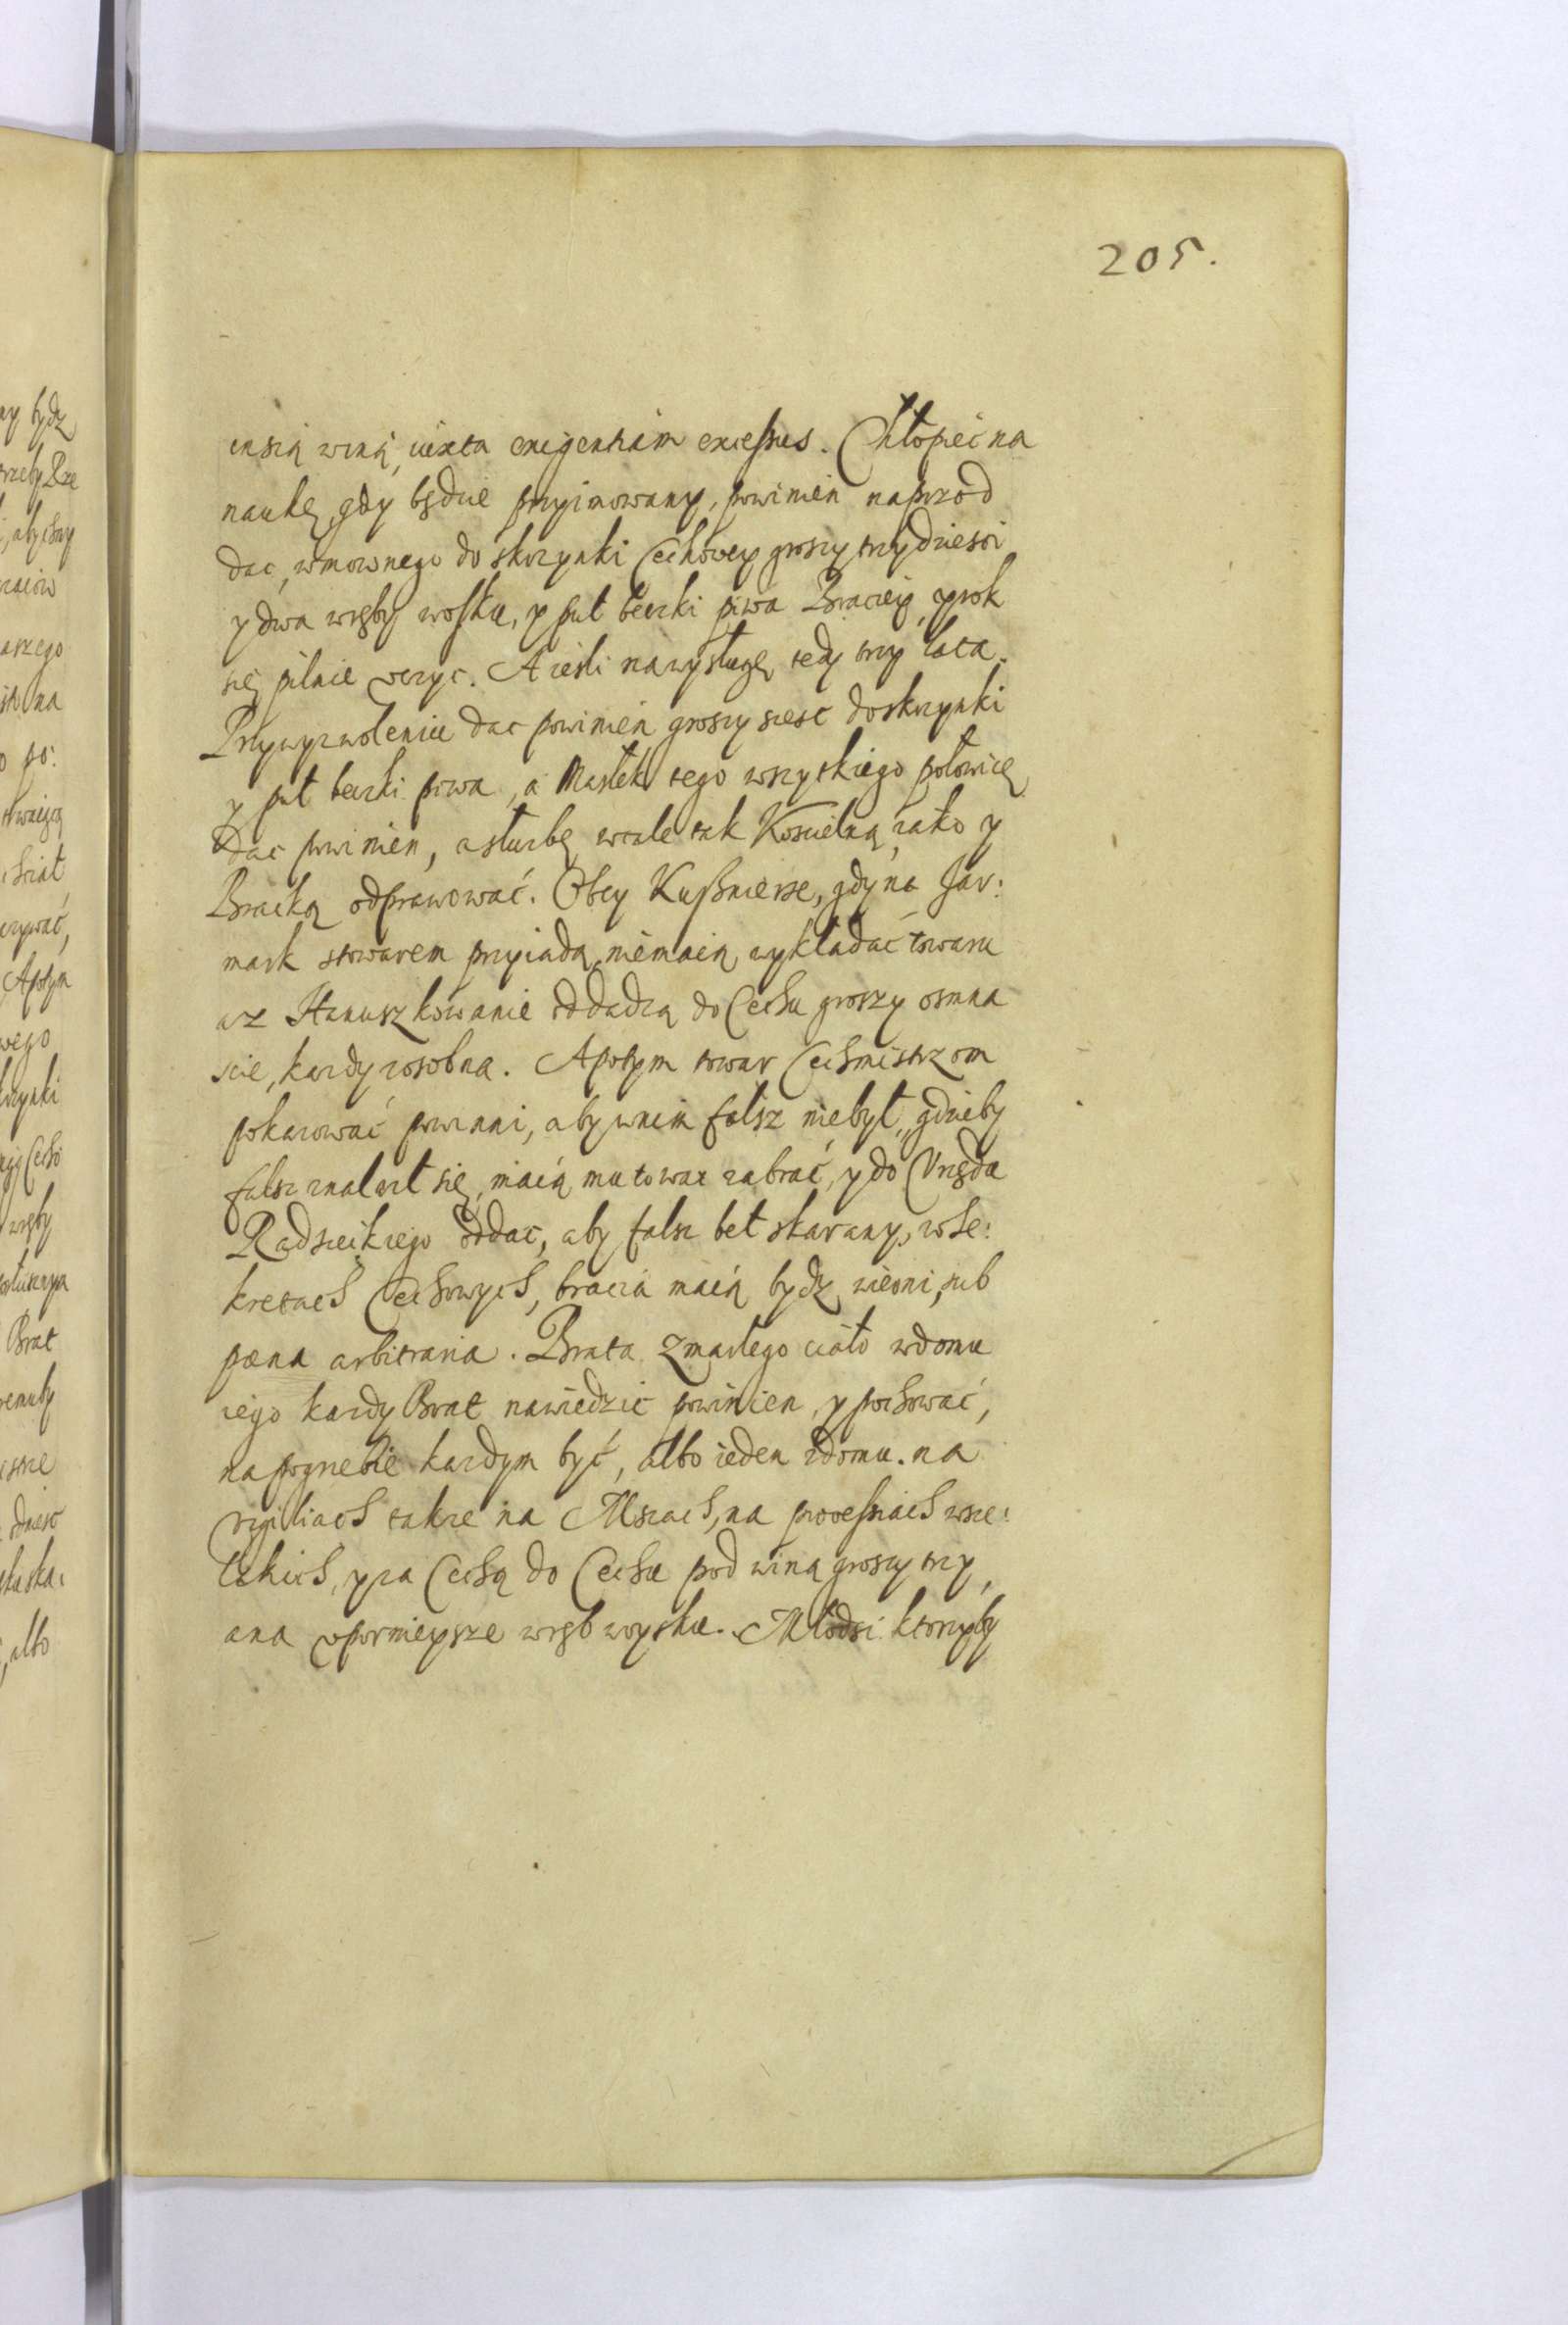 205.
inszą winą, iuxta exigentiam excessus. Chłopiec na
naukę, gdy będzie przyimowany, powinien naprzod
dac, wmownego do skrzynki Cechowey groszy trzydziesci
y dwa wręby wosku, y puł beczki piwa Braciey, y rok
się pilnie uczyc. A iesli na wysługę, tedy trzy lata.
Przy wyzwoleniu dac powinien groszy szesc do skrzynki
y puł beczki piwa, a Mastek tego wszystkiego połowicę
dac powinien, a służbę wcale tak Koscielną, iako y
Bracką odprawować. Obcy Kußnierze, gdy na Jar:
mark stowarem przyiadą, niemaią wykładać towaru
az Hanuszkowanie oddadzą do Cechu groszy osmna
scie, kazdy zosobna. A potym towar Cechmistrzom
pokazować powinni, aby wnim falsz niebył, gdzieby
falsz znalazł się, maią mu towar zabrać, y do Urzędu
Radzieckiego oddac, aby falsz beł skarany, w Se:
kretach Cechowych, bracia maią bydz wierni, sub
pœna arbitraria. Brata zmarłego ciało w domu
iego kazdy Brat nawiedzic powinien, y pochować,
na pogrzebie kazdym być, albo ieden z domu. na
vigiliach takze na Mszach, na processiach wsze:
lakich, y za Cechą do Cechu pod winą groszy trzy,
a na upornieysze wręb woysku. Młodsi ktorzyby